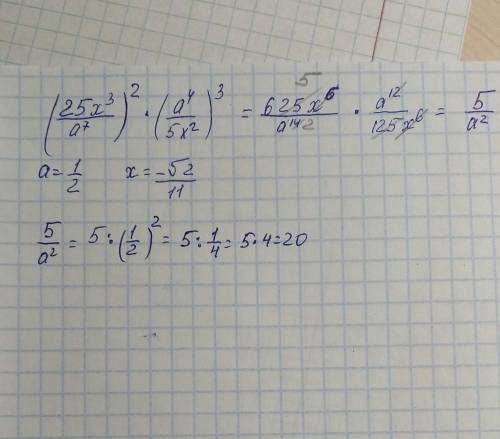 (25x³/a⁷)² · (a⁴/5x²)³ = 625x⁶/a¹⁴ · a¹²/125x⁶ = 5/a²
5
2
a = 1/2 x = -√2/11
5/a² = 5 : (1/2)² = 5 : 1/4 = 5 · 4 = 20